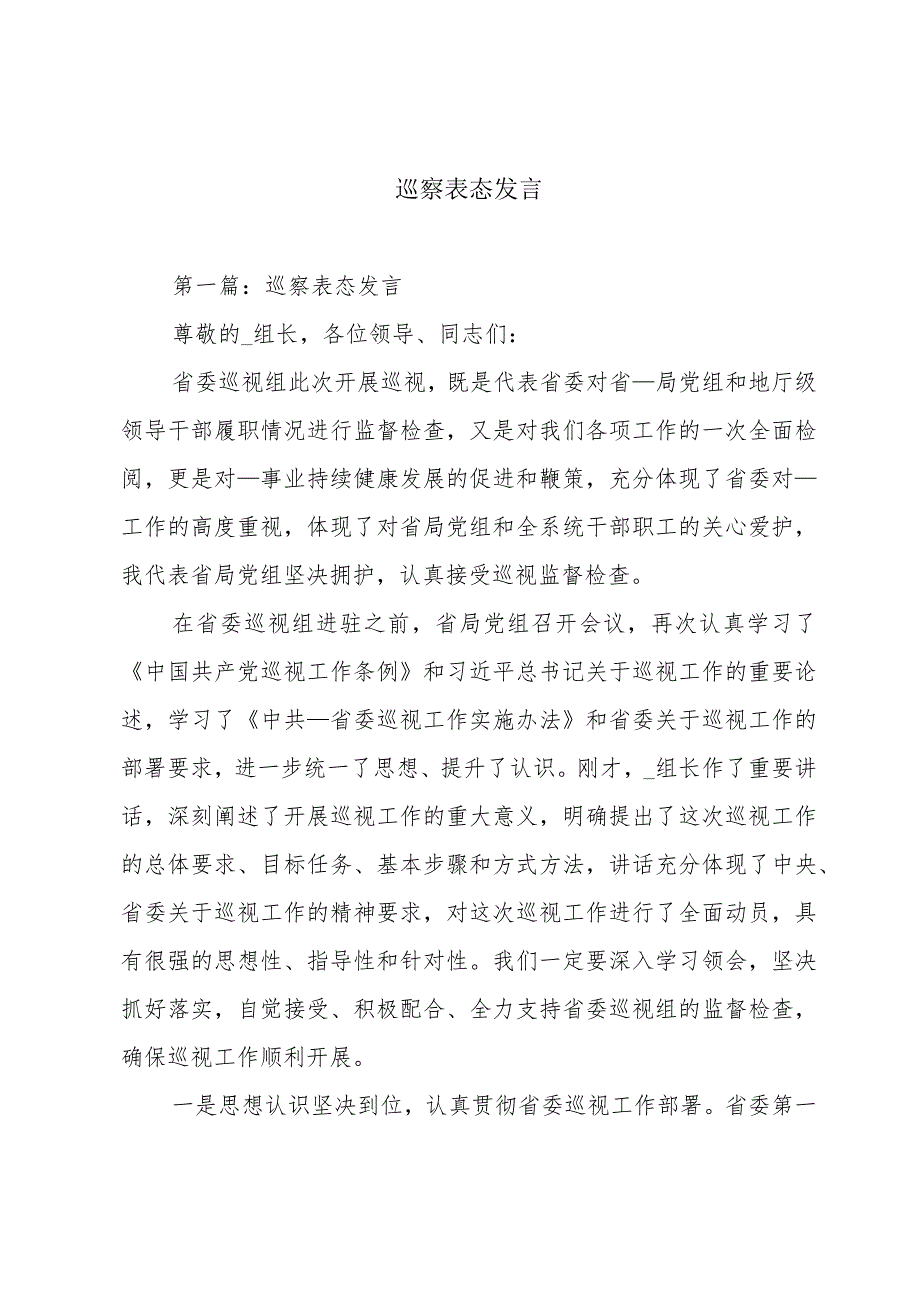 巡察表态发言
第一篇：巡察表态发言
尊敬的_组长，各位领导、同志们：
省委巡视组此次开展巡视，既是代表省委对省—局党组和地厅级
领导干部履职情况进行监督检查，又是对我们各项工作的一次全面检
阅，更是对—事业持续健康发展的促进和鞭策，充分体现了省委对—
工作的高度重视，体现了对省局党组和全系统干部职工的关心爱护，
我代表省局党组坚决拥护，认真接受巡视监督检查。
在省委巡视组进驻之前，省局党组召开会议，再次认真学习了
《中国共产党巡视工作条例》和习近平总书记关于巡视工作的重要论
述，学习了《中共—省委巡视工作实施办法》和省委关于巡视工作的
部署要求，进一步统一了思想、提升了认识。刚才，_组长作了重要讲
话，深刻阐述了开展巡视工作的重大意义，明确提出了这次巡视工作
的总体要求、目标任务、基本步骤和方式方法，讲话充分体现了中央、
省委关于巡视工作的精神要求，对这次巡视工作进行了全面动员，具
有很强的思想性、指导性和针对性。我们一定要深入学习领会，坚决
抓好落实，自觉接受、积极配合、全力支持省委巡视组的监督检查，
确保巡视工作顺利开展。
一是思想认识坚决到位，认真贯彻省委巡视工作部署。省委第一